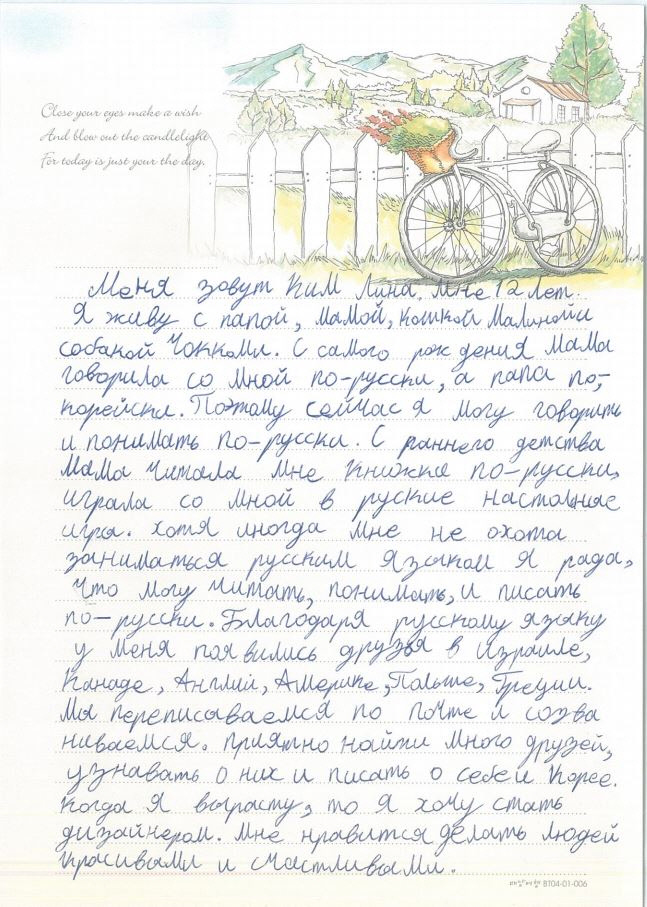 Close your eyes make a wish
And blow out the candlelight
For today is just your the day.
Меня зовут Ким Лина. Мне 12 лет.
Я живу с папой, мамой, кошкой Малиной и
собакой Чоккоми. С самого рождения мама
говорила со мной по-русски, а папа по-
корейски. Поэтому сейчас я могу говорить
и понимать по-русски. С раннего детства
мама читала мне книжке по-русски,
играла со мной в руские настолние
игры. хотя иногда мне не охота
заниматься русским языком я рада,
что могу читать, понимать, и писать
по-русски. Благодаря русскому языку
у меня появились друзья в Израиле,
Канаде, Англии, Америке, Польше, Греции.
Мы переписываемся по почте и созва
ниваемся. приятно найти много друзей,
узнавать о них и писать о себе и Корее.
когда я вырасту, то я хочу стать
дизайнером. Мне нравится делать людей
красивыми и счастливыми.
BT04-01-006